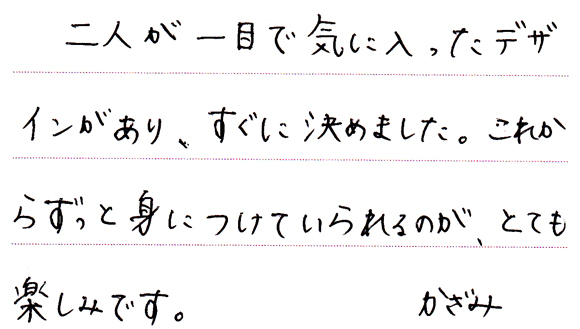 二人が一目で気に入ったデザ
インがあり、すぐに決めました。これか
らずっと身につけていられるのが、とても
楽しみです。 かざみ